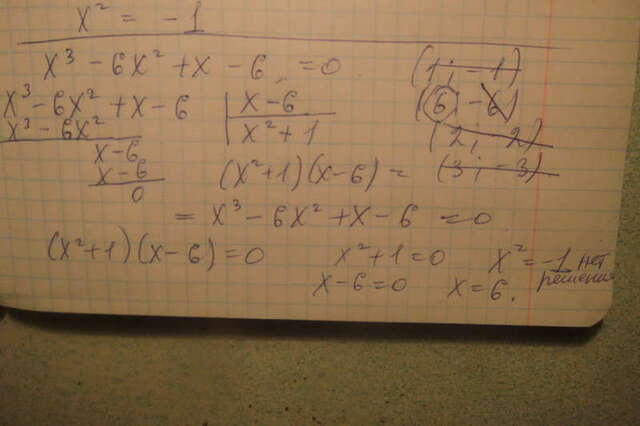 x² = -1
x³ - 6x² + x - 6 = 0 (1; -1)
x³ - 6x² + x - 6 | x - 6 (6, -6)
x³ - 6x² x² + 1 (2; -2)
x - 6
x - 6 (x² + 1)(x - 6) = (3; -3)
0
= x³ - 6x² + x - 6 = 0
(x² + 1)(x - 6) = 0 x² + 1 = 0 x² = -1 нет
решения
x - 6 = 0 x = 6.